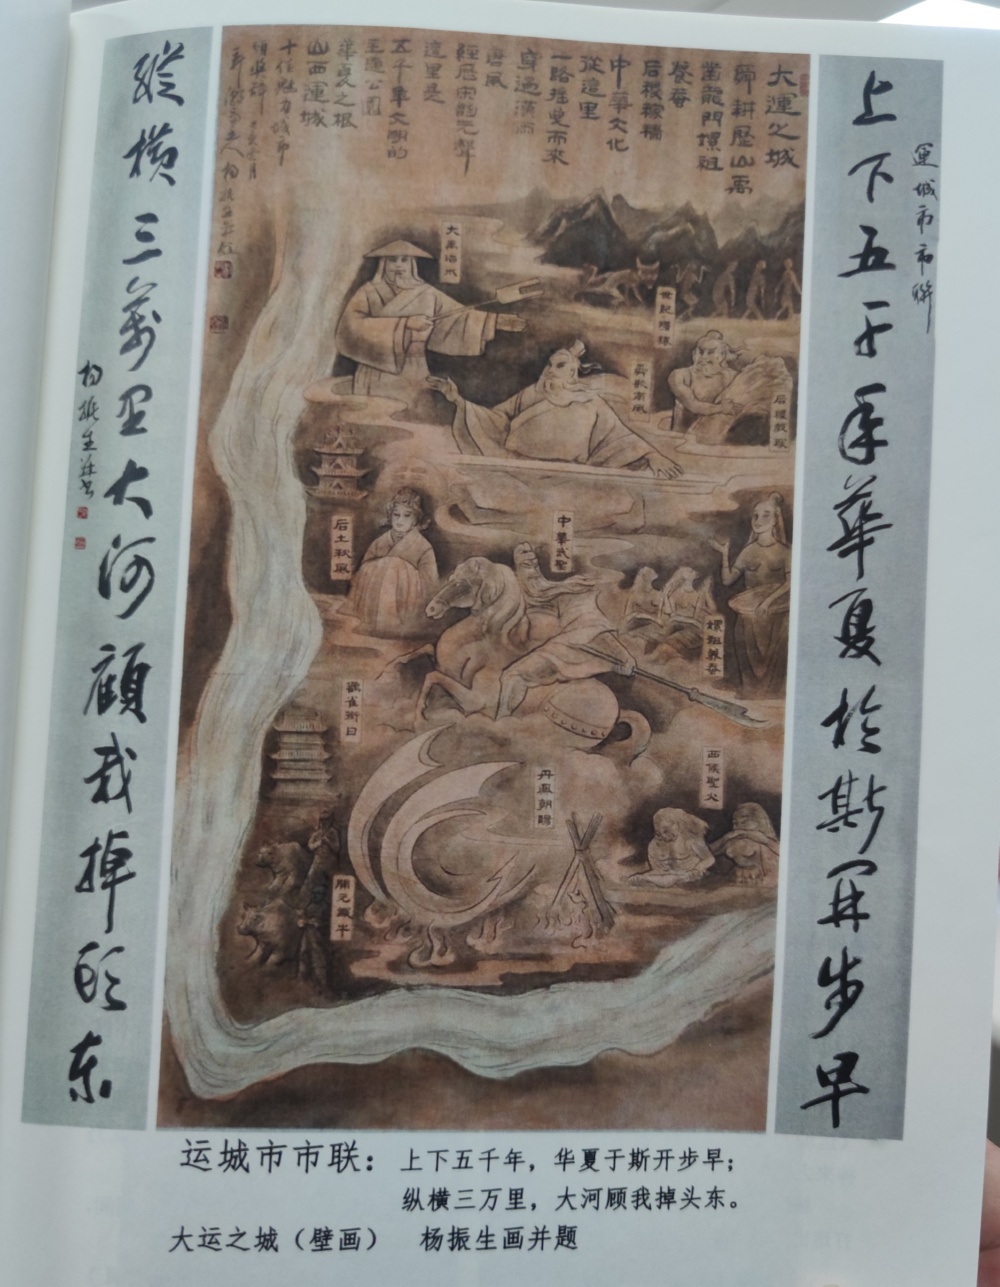 運城市市聯
上下五千年華夏於斯开步早
縱橫三萬里大河顧我掉頭东
杨振生並书
大運之城
舜耕歷山禹
鑿龍門嫘祖
養蠶
后稷稼穡
中華文化
從這里
一路摇曳而來
穿過漢雨
唐風
經歷宋韵元聲
這里是
五千年文明的
主題公園
華夏之根
山西運城
十佳魅力城市
頒獎辭
大禹治水
世紀曙猿
舜歌南風
后稷教稼
后土秋風
中華武聖
嫘祖養蚕
鸛雀銜日
西侯聖火
開元鐵牛
运城市市联：上下五千年，华夏于斯开步早；
纵横三万里，大河顾我掉头东。
大运之城（壁画） 杨振生画并题